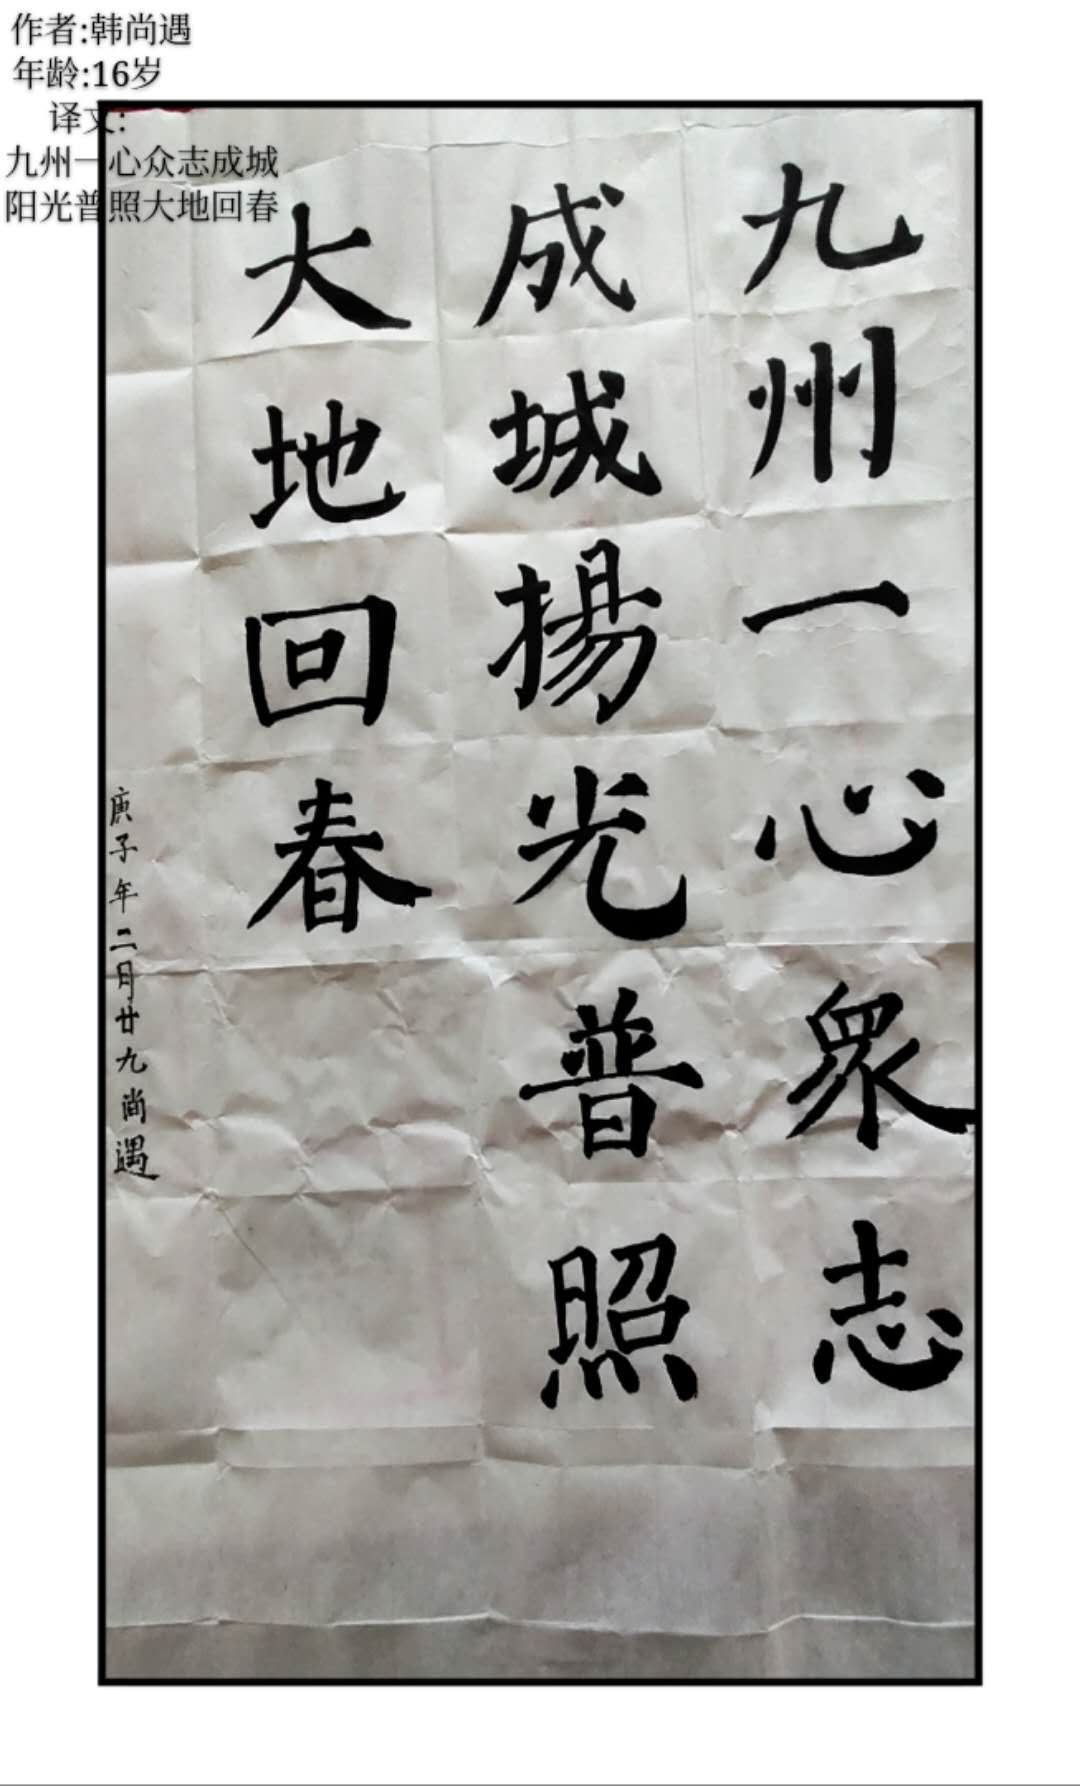 作者:韩尚遇
年龄:16岁
译文:
九州一心众志成城
阳光普照大地回春
九州一心眾志
成城揚光普照
大地回春
庚子年二月廿九尚遇